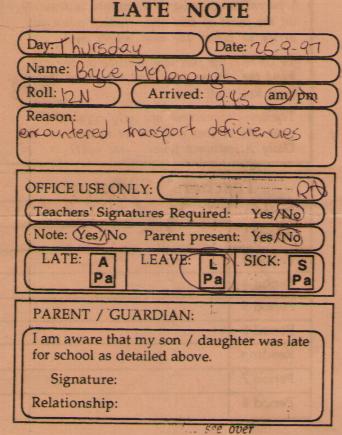 LATE NOTE
Day: Thursday Date: 25-9-97
Name: Bryce McDonough
Roll: 12N Arrived: 9:45 am/pm
Reason:
encountered transport deficiencies
OFFICE USE ONLY:
Teachers' Signatures Required: Yes/No
Note: Yes/No Parent present: Yes/No
LATE: A Pa LEAVE: L Pa SICK: S Pa
PARENT / GUARDIAN:
I am aware that my son / daughter was late
for school as detailed above.
Signature:
Relationship:
see over